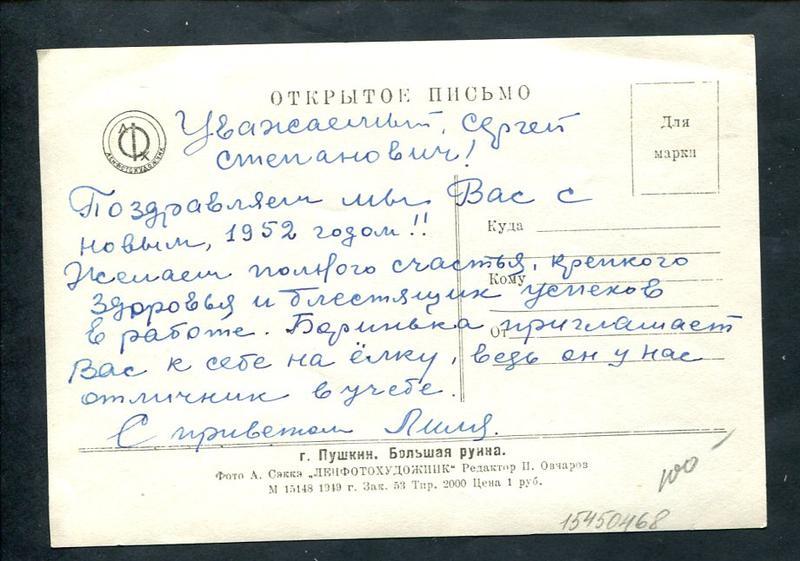 ОТКРЫТОЕ ПИСЬМО
ЛФХ
ЛЕНФОТОХУДОЖНИК
Для
марки
Уважаемый, Сергей
Степанович!
Поздравляем мы Вас с
новым, 1952 годом!!
Куда
Желаем полного счастья, крепкого
Кому
здоровья и блестящих успехов
От
в работе. Боринька приглашает
Вас к себе на ёлку, ведь он у нас
отличник в учебе.
С приветом Лиля.
г. Пушкин. Большая руина.
Фото А. Сакка „ЛЕНФОТОХУДОЖНИК“ Редактор П. Овчаров
М 15148 1949 г. Зак. 53 Тир. 2000 Цена 1 руб.
100
15450468